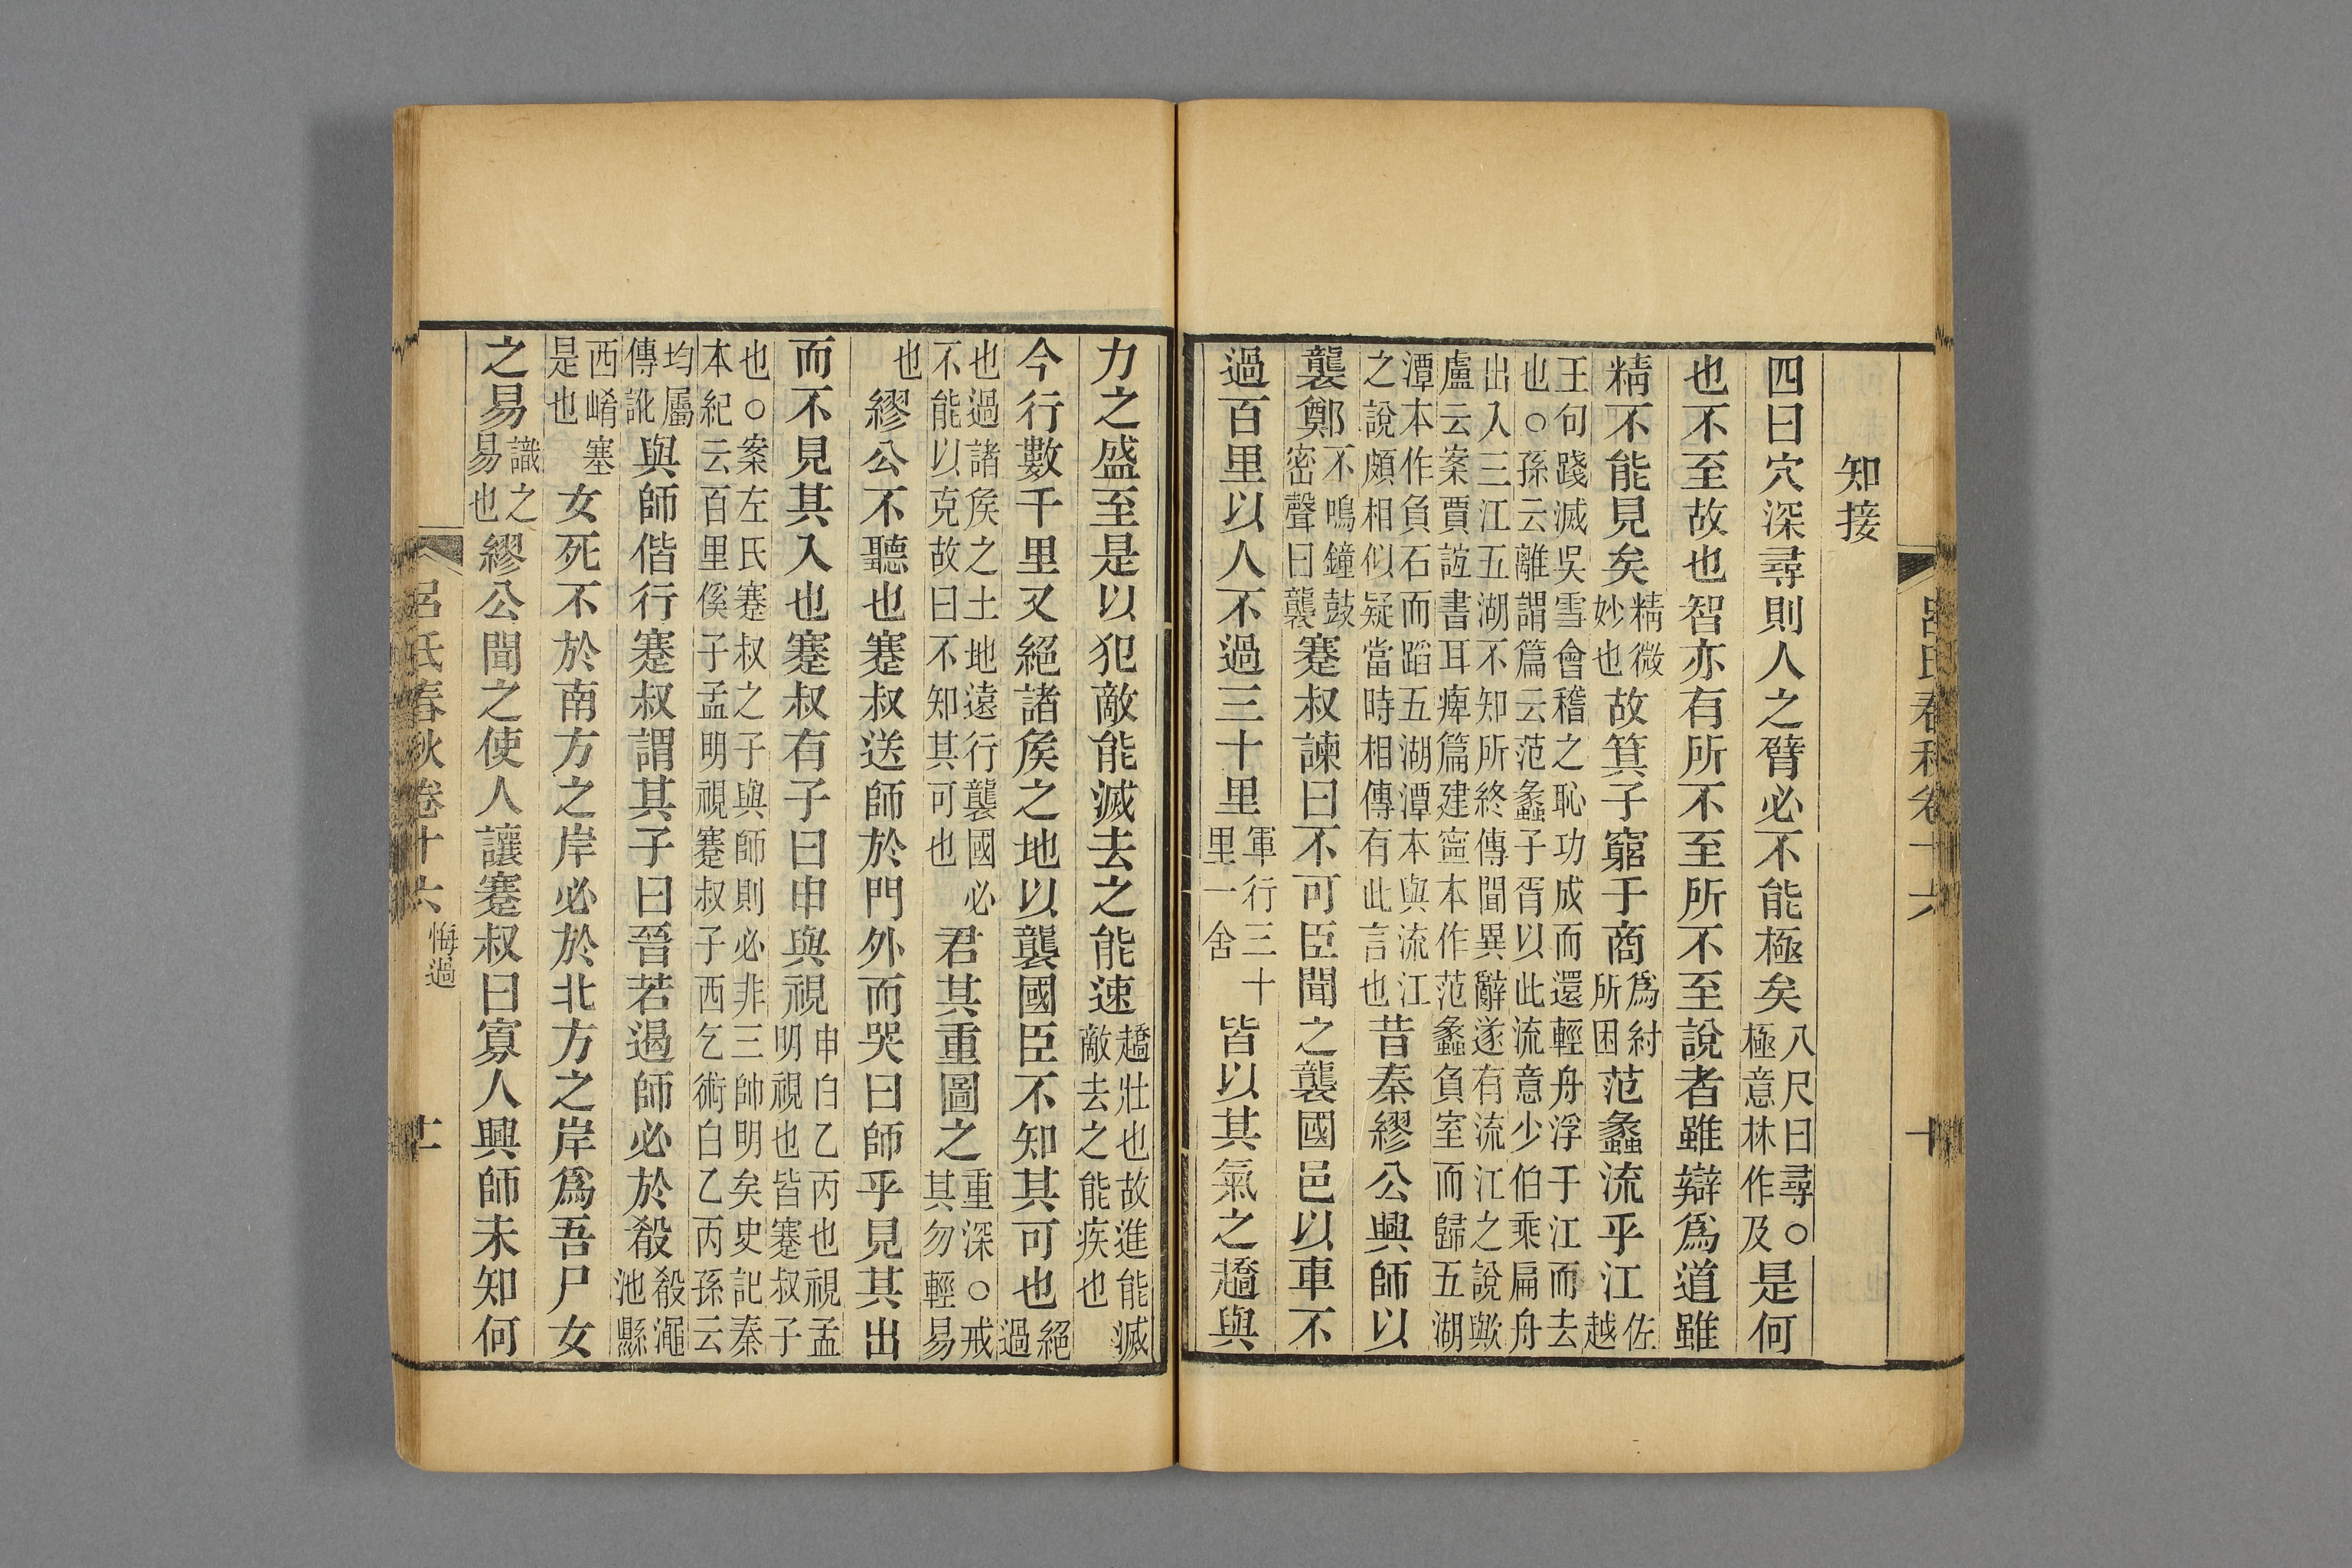 呂氏春秋卷十六 十
知接
四曰穴深尋則人之臂必不能極矣八尺曰尋○極意林作及是何
也不至故也智亦有所不至所不至說者雖辯爲道雖
精不能見矣精微妙也故箕子窮于商爲紂所困范蠡流乎江佐越
王句踐滅吳雪會稽之恥功成而還輕舟浮于江而去
也○孫云離謂篇云范蠡子胥以此流意少伯乘扁舟
出入三江五湖不知所終傳聞異辭遂有流江之說歟
盧云案賈誼書耳痺篇建寧本作范蠡負室而歸五湖
潭本作負石而蹈五湖潭本與流江之說頗相似疑當時相傳有此言也昔秦繆公興師以
襲鄭不鳴鐘鼓密聲曰襲蹇叔諫曰不可臣聞之襲國邑以車不
過百里以人不過三十里軍行三十里一舍皆以其氣之趫與
力之盛至是以犯敵能滅去之能速趫壯也故進能滅敵去之能疾也
今行數千里又絕諸矦之地以襲國臣不知其可也絕過
也過諸矦之土地遠行襲國必不能以克故曰不知其可也君其重圖之重深○戒其勿輕易
也繆公不聽也蹇叔送師於門外而哭曰師乎見其出
而不見其入也蹇叔有子曰申與視申白乙丙也視孟明視也皆蹇叔子
也○案左氏蹇叔之子與師則必非三帥明矣史記秦
本紀云百里傒子孟明視蹇叔子西乞術白乙丙孫云
均屬傳訛與師偕行蹇叔謂其子曰晉若遏師必於殽殽澠池縣
西崤塞是也女死不於南方之岸必於北方之岸爲吾尸女
之易識之易也繆公聞之使人讓蹇叔曰寡人興師未知何
呂氏春秋卷十六 悔過 十一